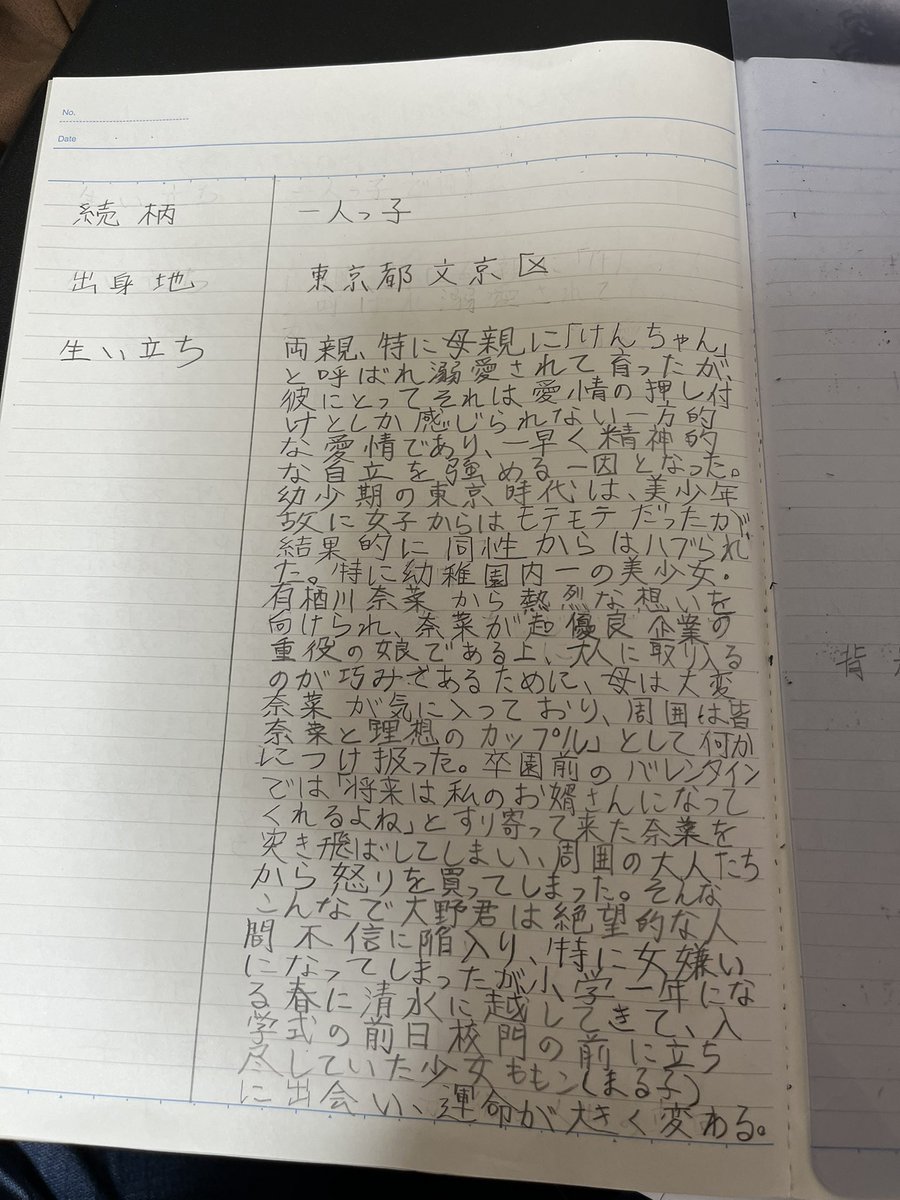 No.
Date
続柄 一人っ子
出身地 東京都文京区
生い立ち 両親、特に母親に「けんちゃん」
と呼ばれ溺愛されて育ったが、
彼にとってそれは愛情の押し付
けとしか感じられない一方的
な愛情であり、一早く精神的
な自立を強める一因となった。
幼少期の東京時代は、美少年
故に女子からはモテモテだったが
結果的に同性からはハブられ
た。特に幼稚園内一の美少女・
有栖川奈菜から熱烈な想いを
向けられ、奈菜が超優良企業の
重役の娘である上、大人に取り入る
のが巧みであるために、母は大変
奈菜が気に入っており、周囲は皆
奈菜と理想のカップル」として何か
につけ扱った。卒園前のバレンタイン
では「将来は私のお婿さんになって
くれるよね」とすり寄って来た奈菜を
突き飛ばしてしまい、周囲の大人たち
から怒りを買ってしまった。そんな
こんなで大野君は絶望的な人
間不信に陥入り、特に女嫌い
になってしまったが小学一年にな
る春に清水に越してきて、入
学式の前日校門の前に立ち
尽していた少女ももン(まる子)
に出会い、運命が大きく変わる。
背